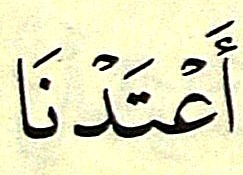 أَعْتَدْنَا